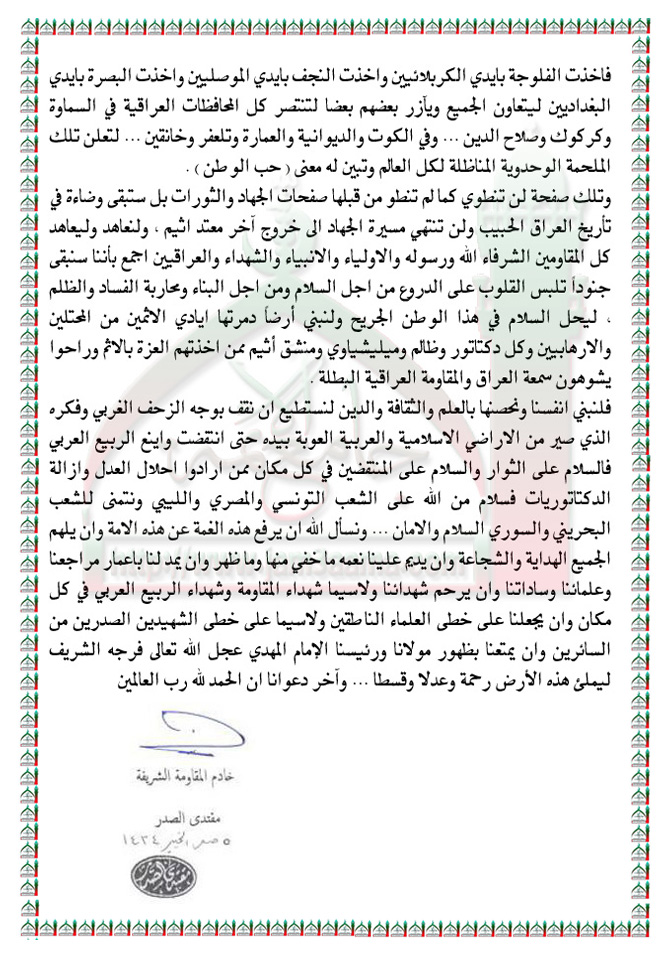 فاخذت الفلوجة بايدي الكربلائيين واخذت النجف بايدي الموصليين واخذت البصرة بايدي
البغداديين ليتعاون الجميع ويآزر بعضهم بعضا لتنتصر كل المحافظات العراقية في السماوة
وكركوك وصلاح الدين ... وفي الكوت والديوانية والعمارة وتلعفر وخانقين ... لتعلن تلك
الملحمة الوحدوية المناظلة لكل العالم وتبين له معنى ( حب الوطن ) .
وتلك صفحة لن تنطوي كما لم تنطو من قبلها صفحات الجهاد والثورات بل ستبقى وضاءة في
تأريخ العراق الحبيب ولن تنتهي مسيرة الجهاد الى خروج آخر معتد اثيم ، ولنعاهد وليعاهد
كل المقاومين الشرفاء الله ورسوله والاولياء والانبياء والشهداء والعراقيين اجمع بأننا سنبقى
جنوداً تلبس القلوب على الدروع من اجل السلام ومن اجل البناء ومحاربة الفساد والظلم
، ليحل السلام في هذا الوطن الجريح ولنبني أرضاً دمرتها ايادي الاثمين من المحتلين
والارهابيين وكل دكتاتور وظالم وميليشياوي ومنشق أثيم ممن اخذتهم العزة بالاثم وراحوا
يشوهون سمعة العراق والمقاومة العراقية البطلة .
فلنبني انفسنا ونحصنها بالعلم والثقافة والدين لنستطيع ان نقف بوجه الزحف الغربي وفكره
الذي صير من الاراضي الاسلامية والعربية العوبة بيده حتى انتفضت واينع الربيع العربي
فالسلام على الثوار والسلام على المنتفضين في كل مكان ممن ارادوا احلال العدل وازالة
الدكتاتوريات فسلام من الله على الشعب التونسي والمصري والليبي ونتمنى للشعب
البحريني والسوري السلام والامان ... ونسأل الله ان يرفع هذه الغمة عن هذه الامة وان يلهم
الجميع الهداية والشجاعة وان يديم علينا نعمه ما خفي منها وما ظهر وان يمد لنا باعمار مراجعنا
وعلمائنا وساداتنا وان يرحم شهدائنا ولاسيما شهداء المقاومة وشهداء الربيع العربي في كل
مكان وان يجعلنا على خطى العلماء الناطقين ولاسيما على خطى الشهيدين الصدرين من
السائرين وان يمتعنا بظهور مولانا ورئيسنا الإمام المهدي عجل الله تعالى فرجه الشريف
ليملئ هذه الأرض رحمة وعدلا وقسطا ... وآخر دعوانا ان الحمد لله رب العالمين
خادم المقاومة الشريفة
مقتدى الصدر
٥ صفر الخير ١٤٣٤